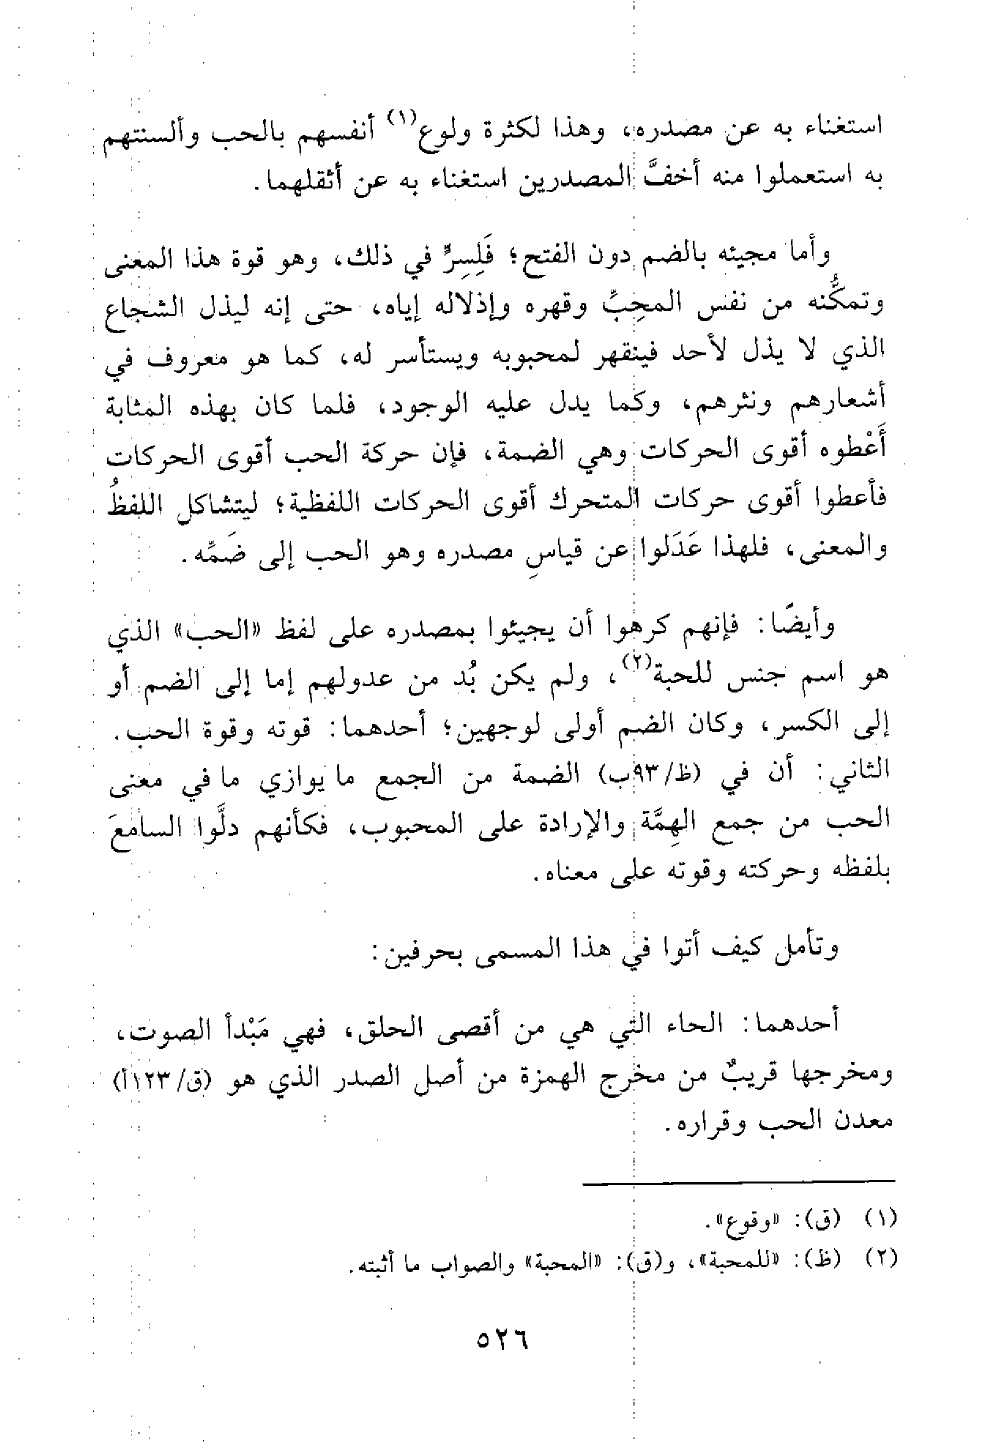 استغناء به عن مصدره، وهذا لكثرة ولوع(١) أنفسهم بالحب وألسنتهم
به استعملوا منه أخفَّ المصدرين استغناء به عن أثقلهما.
وأما مجيئه بالضم دون الفتح؛ فَلِسِرٍّ في ذلك، وهو قوة هذا المعنى
وتمكُّنه من نفس المحِبِّ وقهره وإذلاله إياه، حتى إنه ليذل الشجاع
الذي لا يذل لأحد فينقهر لمحبوبه ويستأسر له، كما هو معروف في
أشعارهم ونثرهم، وكما يدل عليه الوجود، فلما كان بهذه المثابة
أَعْطوه أقوى الحركات وهي الضمة، فإن حركة الحب أقوى الحركات
فأعطوا أقوى حركات المتحرك أقوى الحركات اللفظية؛ ليتشاكل اللفظُ
والمعنى، فلهذا عَدَلوا عن قياسِ مصدره وهو الحب إلى ضَمِّه.
وأيضًا: فإنهم كرهوا أن يجيئوا بمصدره على لفظ «الحب» الذي
هو اسم جنس للحبة(٢)، ولم يكن بُد من عدولهم إما إلى الضم أو
إلى الكسر، وكان الضم أولى لوجهين؛ أحدهما: قوته وقوة الحب.
الثاني: أن في (ظ/٩٣ب) الضمة من الجمع ما يوازي ما في معنى
الحب من جمع الهِمَّة والإرادة على المحبوب، فكأنهم دلَّوا السامعَ
بلفظه وحركته وقوته على معناه.
وتأمل كيف أتوا في هذا المسمى بحرفين:
أحدهما: الحاء التي هي من أقصى الحلق، فهي مَبْدأ الصوت،
ومخرجها قريبٌ من مخرج الهمزة من أصل الصدر الذي هو (ق/١٢٣أ)
معدن الحب وقراره.
(١) (ق): «وقوع».
(٢) (ظ): «للمحبة»، و(ق): «المحبة» والصواب ما أثبته.
٥٢٦